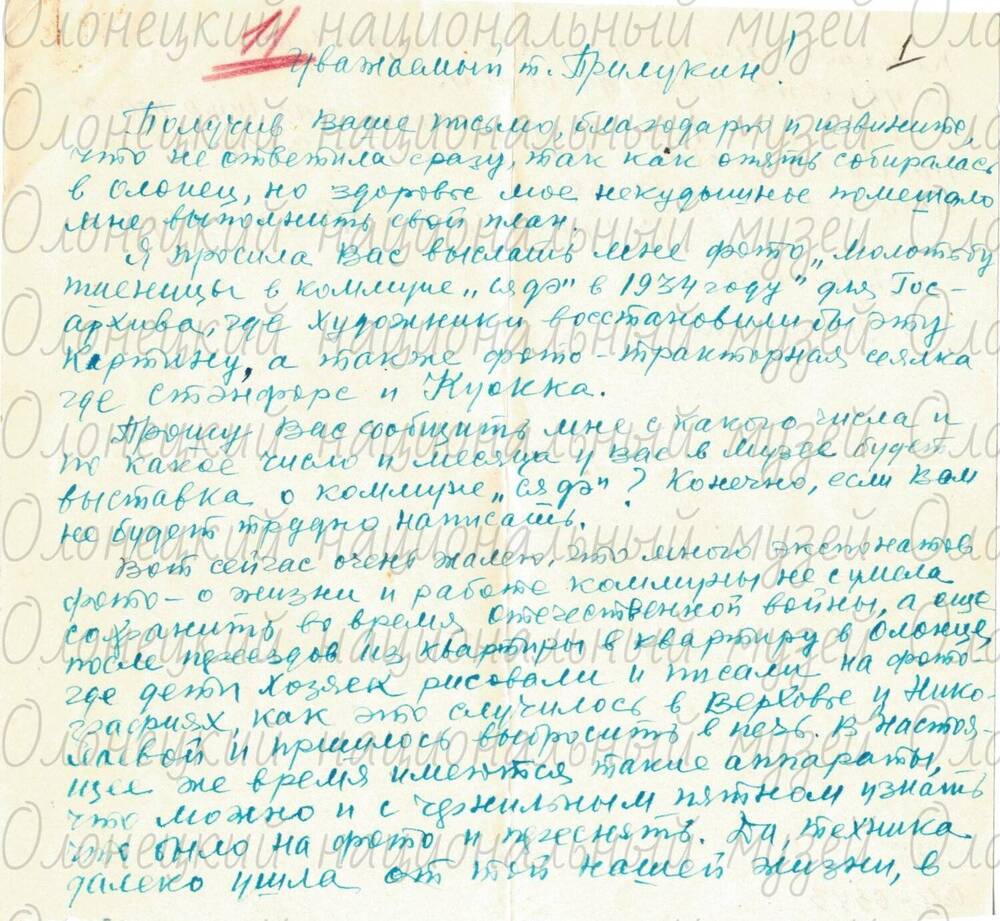 1) 1
Уважаемый т. Прилукин!
Получив Ваше письмо, благодарю и извините,
что не ответила сразу, так как опять собиралась
в Олонец, но здоровье мое некудышнее помешало
мне выполнить свой план.
Я просила Вас выслать мне фото „молотьбу
пшеницы в коммуне „сядэ" в 1934 году" для Гос-
архива, где художники восстановили бы эту
картину, а также фото-тракторная сеялка
где Стэнфорс и Куокка.
Прошу Вас сообщить мне с какого числа и
по какое число и месяца у Вас в музее будет
выставка о коммуне „сядэ"? Конечно, если Вам
не будет трудно написать.
Вот сейчас очень жалею, что много экспонатов
фото- о жизни и работе коммуны не сумела
сохранить во время Отечественной войны, а еще
после переездов из квартиры в квартиру в Олонце,
где дети хозяек рисовали и писали на фото-
графиях, как это случилось в Верховье у Нико-
лаевой и пришлось выбросить в печь. В настоя-
щее же время имеются такие аппараты,
что можно и с чернильным пятном узнать
что было на фото и переснять. Да, техника
далеко ушла от той нашей жизни, в
Олонецкий национальный музей